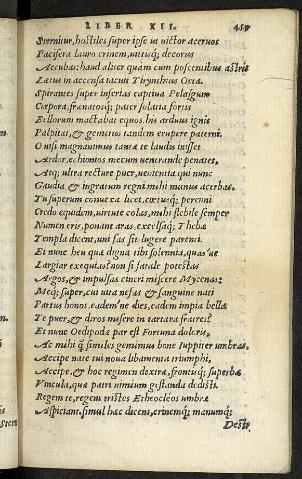 LIBER XII. 457
Sternitur, hostiles super ipse ut victor aceruos
Pacifera lauro crinem, uittisq; decorus
Accubat: haud aliter quàm cum poscentibus astris
Lætus in accensa iacuit Tirynthius Oeta.
Spirantes super inferias captiua Pelasgûm
Corpora, frenatosq; pater solatia fortis
Bellorum mactabat equos. his arduus ignis
Palpitat, & gemitus tandem erupere paterni.
O nisi magnanimus tantæ te laudis inisset
Ardor, echionios mecum uenerande penates,
Atq; ultra recture puer, uenientia qui nunc
Gaudia & ingratum regni mihi munus acerbas.
Tu superum conuexa licet, cœtusq; perenni
Credo equidem, uirtute colas, mihi flebile semper
Numen eris, ponant aras, excelsaq; Thebæ
Templa dicent, uni fas sit lugere parenti.
Et nunc heu quæ digna tibi solennia, quas'ue
Largiar exequias? non si fatale potestas
Argos, & impulsas cineri miscere Mycenas:
Meq; super, cui uita nefas & sanguine nati
Partus honos. eadem'ne dies, eadem impia bella
Te puer, & diros misere in tartara fratres?
Et nunc Oedipodæ par est Fortuna doloris,
Ac mihi q̃ similes gemimus bone Iuppiter umbras,
Accipe nate tui noua libamenta triumphi,
Accipe, & hoc regimen dextræ, frontisq; superbæ
Vincula, quæ patri nimium gestanda dedisti.
Regem te, regem tristes Etheocleos umbræ
Aspiciant. simul hæc dicens, crinemq; manumq;